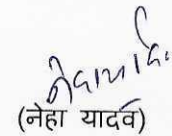 (नेहा यादव)